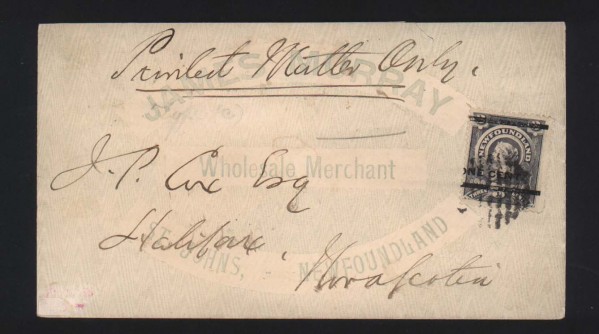 Printed Matter Only.
JAMES MURRAY
NEWFOUNDLAND
ONE CENT
Wholesale Merchant
J. P. Cox Esq
Halifax,
Nova Scotia
ST. JOHNS, NEWFOUNDLAND